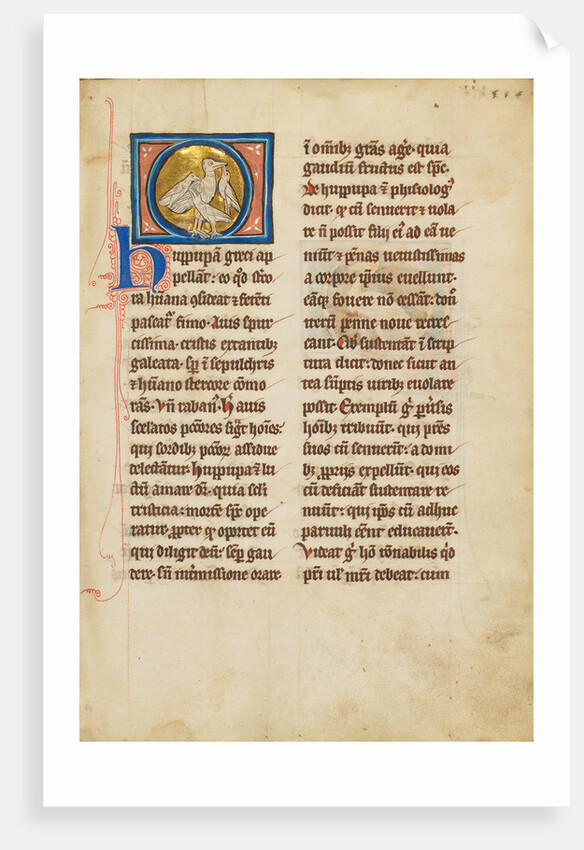 huppupā greci ap
pellāt: eo qd̕ stco
ra hūana ɔſideat ⁊ fetēti
paſcat᷑ fimo. Auis ſpur
ciſſima. criſtis extantibꝫ
galeata. ſp̄ ī ſepulchris
⁊ hūano ſtercore cōmo
rās. Vn̄ raban᷒. h̄ auis
ſcelatos pc̄cores ſigt̄ hoīes:
qui ſordibꝫ pc̄cor̄ aſſidue
delectāt᷑. huppupa ⁊ lu
ctū amare dr̄. quia ſcl̄i
triſticia: mortē ſp̄c ope
ratur. ꝓpter qd̕ oportet eū
qui diligit deū: ſēp gau
dere. ſn̄ īt̄miſſione orare.
ī om̄ibꝫ gr̄as age̅. quia
gaudiū fructus eſt ſp̄c.
De huppupa ⁊ phiſiolog᷒
dicit. qd̕ cū ſenuerit ⁊ uola
re n̄ poſſit filii ei᷒ ad eā ue
niūt ⁊ pēnas uetuſtiſſimas
a corpore ipīus euellunt.
eāqꝫ fouere nō ceſſāt: don̄
uerū penne noue recres
cant. Cib̄ ſuſtentāt ī ſcrip
tura dicit: donec ſicut an
tea ſūptis uiribꝫ euolare
poſſit. Exemplū g̊ puīſis
hoībꝫ tribuūnt. qui pr̄es
ſuos cū ſenuerīt: a domi
bꝫ ꝓpriis expellūt. qui eos
cū deficiāt ſuſtentare re
nuūnt: qui ip̄os cū adhuc
paruuli eēnt educauer̄t.
Videat g̊ hō rōnabilis qd̕
pr̄i ul᷑ mr̄i debeat: cum